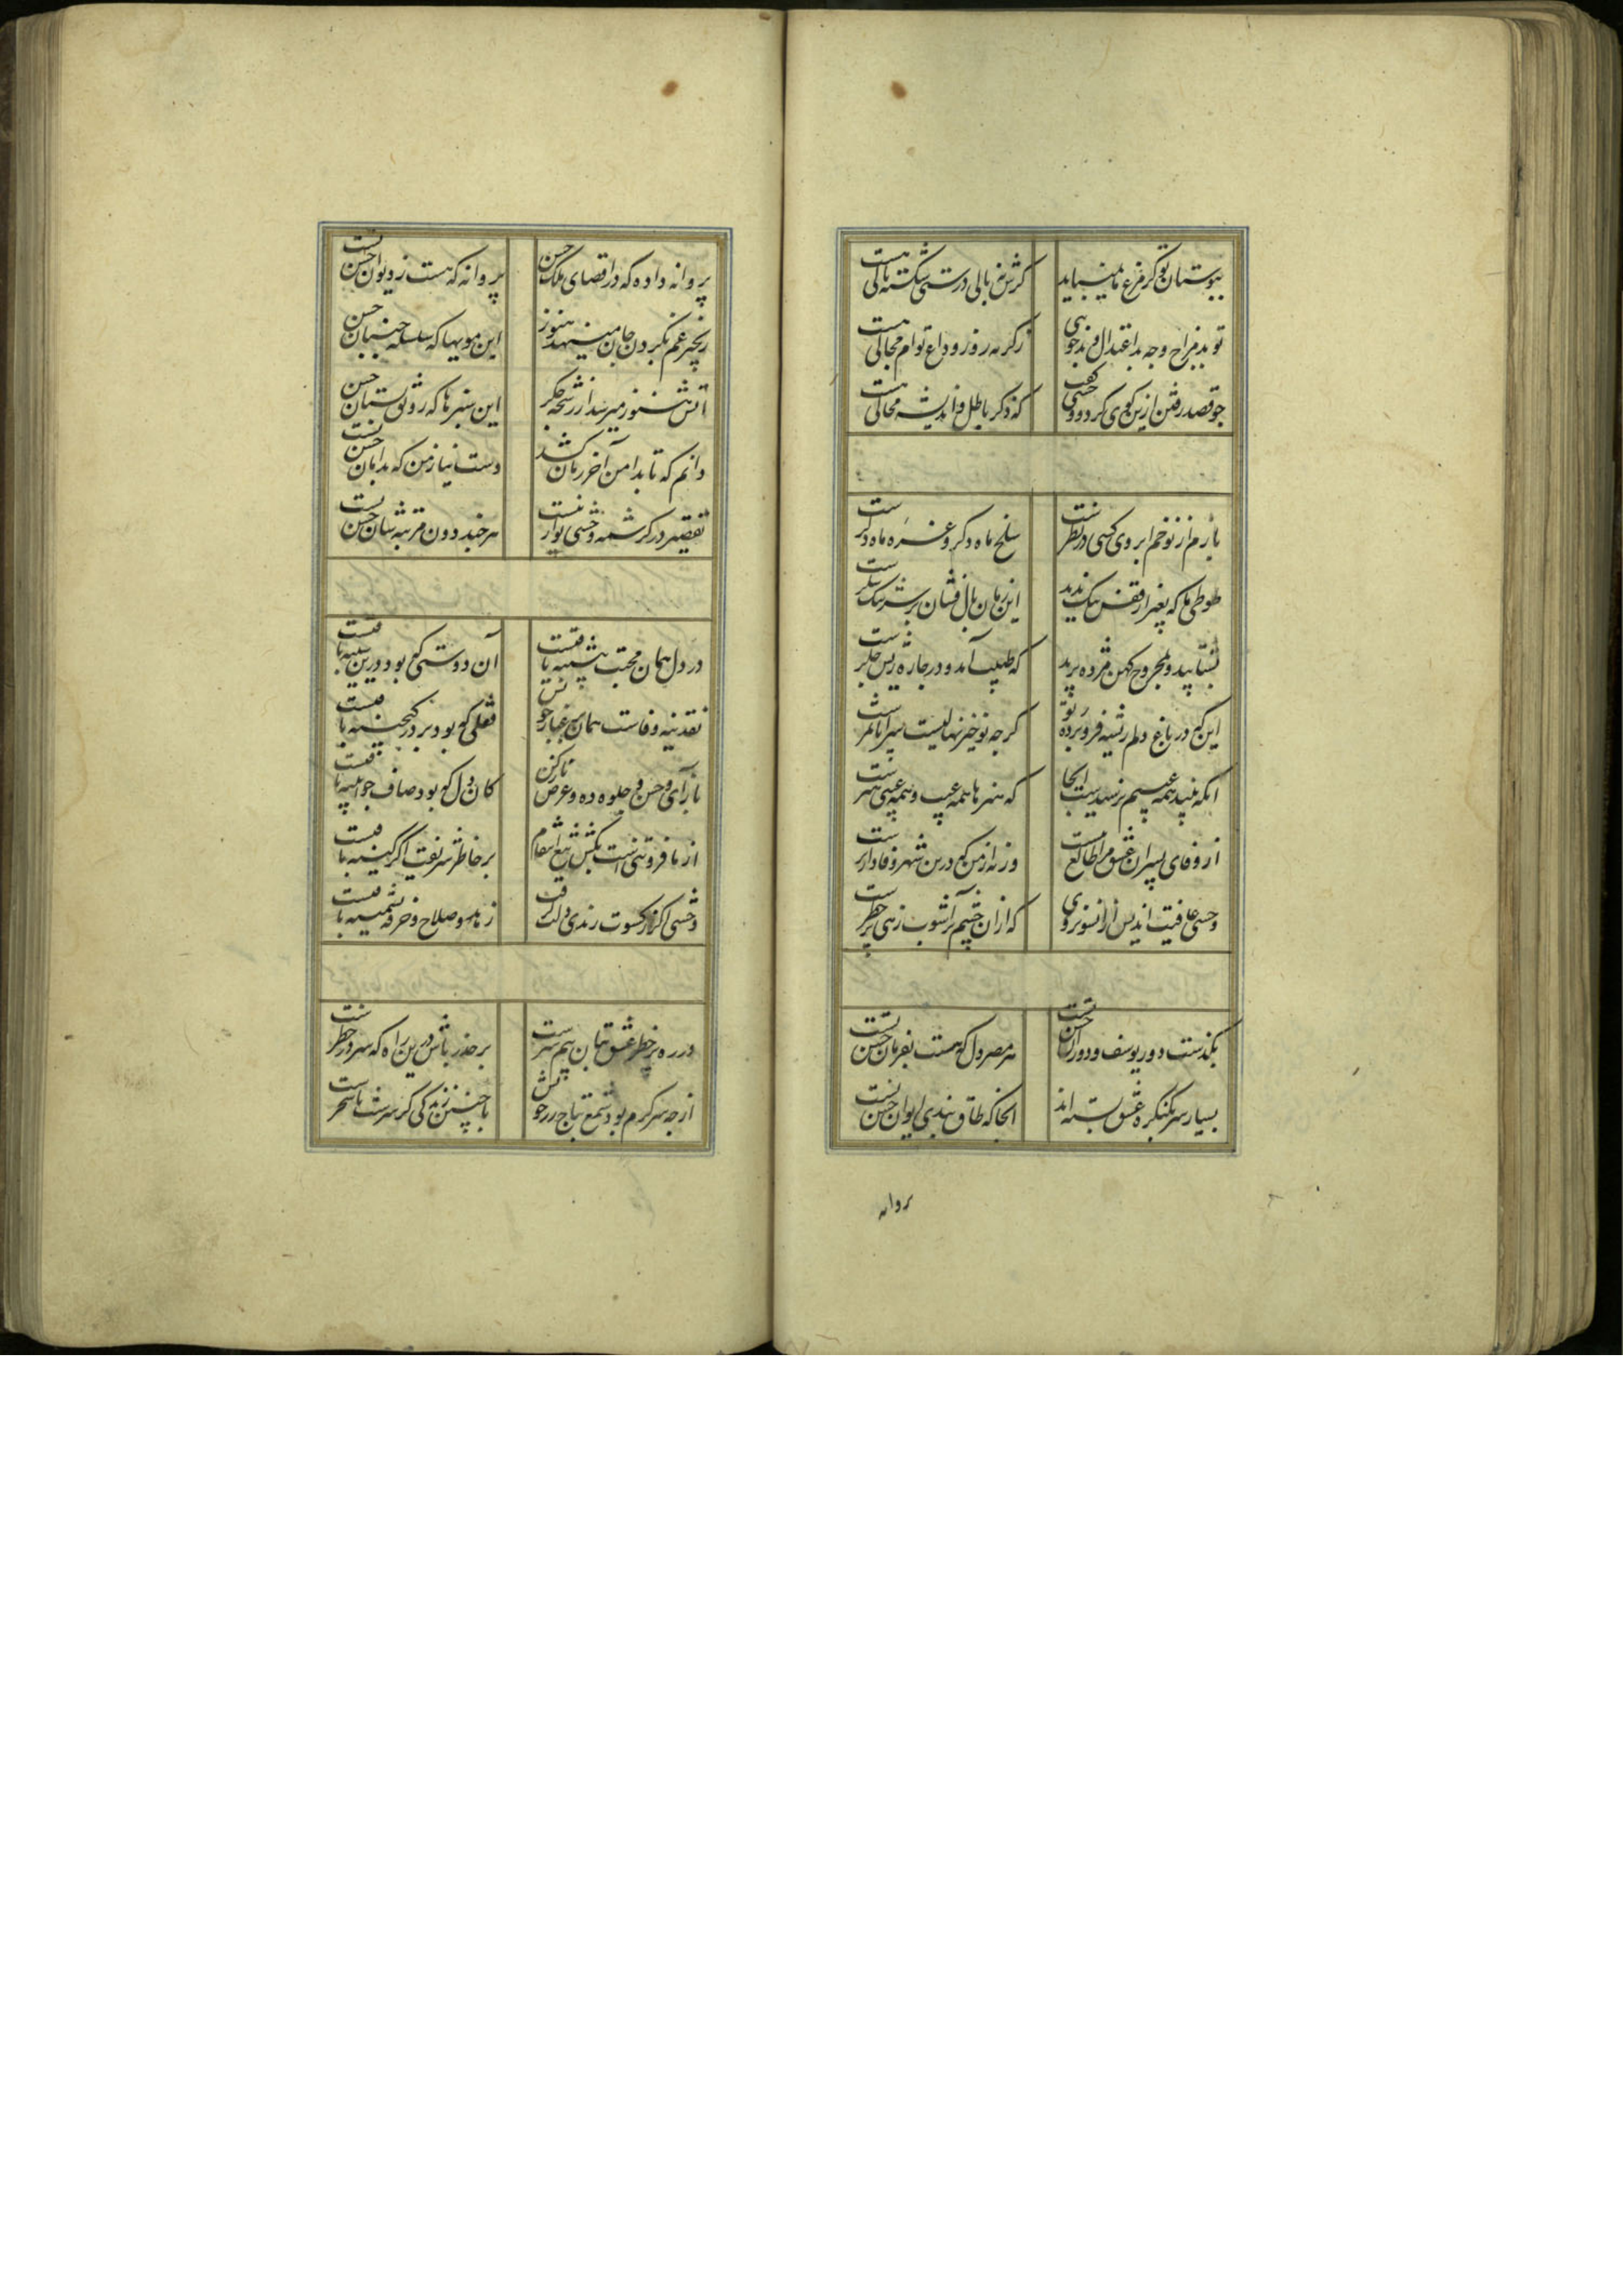 ببوستان تو گر مرغ ما نمیباید گرش نبالی درستی شکسته بالی هست
تو بد مزاج و چه بد اعتدال و بدخویی ز گریه روز وداع توام مجالی هست
چو قصد رفتن ازین کوی کرد و وحشی گفت که ذکر باطل و اندیشه محالی هست
بازم از نو خم ابروی کسی در نظر است سلخ ماه دگر و غره ماه دگر است
طوطی ما که بغیر از قفس تنگ ندید این زمان بال فشان بر سر تنگ شکر است
بشتابید و بمجروح کهن مژده برید که طبیب آمد و در چاره ریش جگر است
این که در باغ دلم ریشه فرو برده ز نو گرچه نوخیز نهالیست سراپا ثمر است
آنکه بیند همه عیبم نرسیدست آنجا که هنرها همه عیب و همه عیبی هنر است
از وفای پسران عشق مرا طالع نیست ورنه از من که درین شهر وفادارتر است
وحشی عاقبت اندیش از آنسو نروی که از آن چشم پرآشوب رهی پر خطر است
بگذشت دور یوسف و دوران حسن تست هر مصر دل که هست بفرمان حسن تست
بسیار سر بکنگره عشق بسته اند آنجا که طاق بندی ایوان حسن تست
پروانه
پروانه داده که در اقصای ملک حسن پروانه که هست ز دیوان حسن تست
زنجیر غم بگردن جان مینهد هنوز این مویها که سلسله جنبان حسن تست
آتش هنوز میرسد از رشحه جگر این سبزها که رشوت بستان حسن تست
دانم که تا بدامن آخر زمان کشد دست نیاز من که بدامان حسن تست
تقصیر در کرشمه وحشی نواز نیست هر چند دون مرتبه شان حسن تست
در دل همان محبت پیشینه باقیست آن دوستی که بود درین سینه باقیست
نقدینه وفاست همان بر عیار خویش قفلی که بود بر در گنجینه باقیست
بازآی و حسن جلوه ده و عرض ناز کن کان دل که بود صاف چو آیینه باقیست
از ما فروتنی است بکش تیغ انتقام بر خاطر شریفت اگر کینه باقیست
وحشی اگر ز کسوت رندی دلت گرفت زهد و صلاح و خرقه پشمینه باقیست
در ره پر خطر عشق بتان بیم سر است بر حذر باش درین راه که سر در خطر است